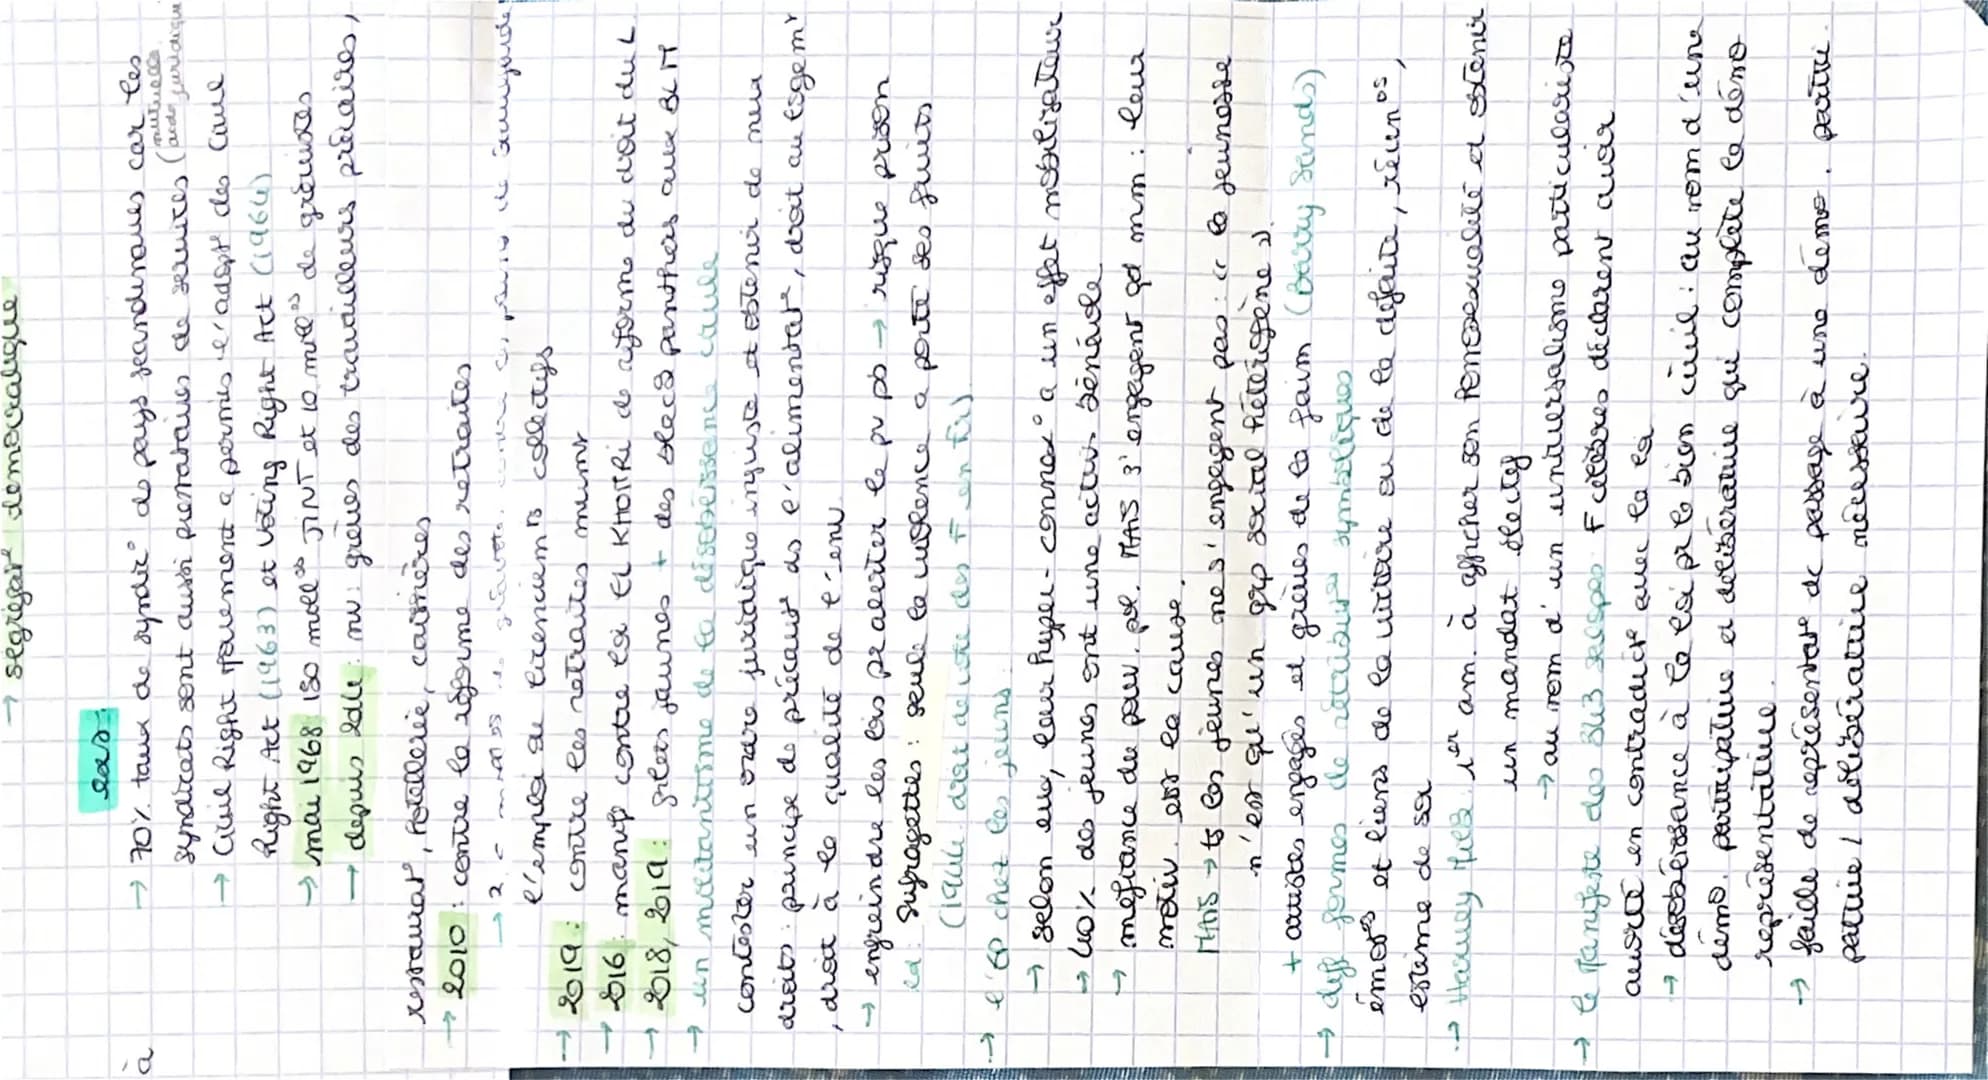 → ségrégat° démocratique
à
eds:
→ 70% taux de syndic° des pays scandinaves car les
syndicats sont aussi prestataires de services (mutuelle aide juridique
→ Civil Right mouvement a permis l'adopt° des Civil
Right Act (1963) et Voting Right Act (1964)
→ mai 1968: 150 mdll°ns JINT et 10 mill°ns de grévistes
→ depuis 2011: nv: grèves des travailleurs précaires,
restaurat°, hôtellerie, caissières
→ 2010: contre la réforme des retraites
l'emploi de licenciemts collectifs
→ 2019: contre les retraites mvmt
→ 2016: manif contre loi EL KHOMRI de réforme du droit du L
→ 2018, 2019: gilets jaunes + des black panthers aux BLM
→ un militantisme de la désobéissance civile
contester un ordre juridique injuste et obtenir de nvx
droits: principe de précaut° ds l'alimentat°, droit au logemt
, droit à la qualité de l'env
→ enfreindre les lois pr alerter le pv pb → risque prison
ed: suffragettes: seule la violence a porté ses fruits
(1944 droit de vote des F en Fr).
→ l'EP chez les jeunes:
→ selon eux, leur hyper-connex° a un effet mobilisateur
→ 40% des jeunes ont une activ. bénévole
→ méfiance du pouv. pol. MAIS s'engagent qd mm: leur
motiv. est la cause.
MAIS → ts les jeunes ne s'engagent pas: « la jeunesse
n'est qu'un grp social hétérogène ».
+ artistes engagés et grèves de la faim (Bobby Sands)
→ dif formes de rétribut° symboliques
émot°ns et liens de la victoire ou de la défaite, réun°ns,
estime de soi
→ Harvey Milk: 1er am. à afficher son homosexualité et obtenir
un mandat électif
→ au nom d'un universalisme particulariste
→ le Manifeste des 343 salopes: F célèbres déclarent avoir
avorté en contradict° avec la loi
→ désobéissance à la loi pr le bien civil: au nom d'une
démo. participative et délibérative qui complète la démo
représentative.
→ faille de représentat° de passage à une démo. partici.
pative / délibérative nécessaire.